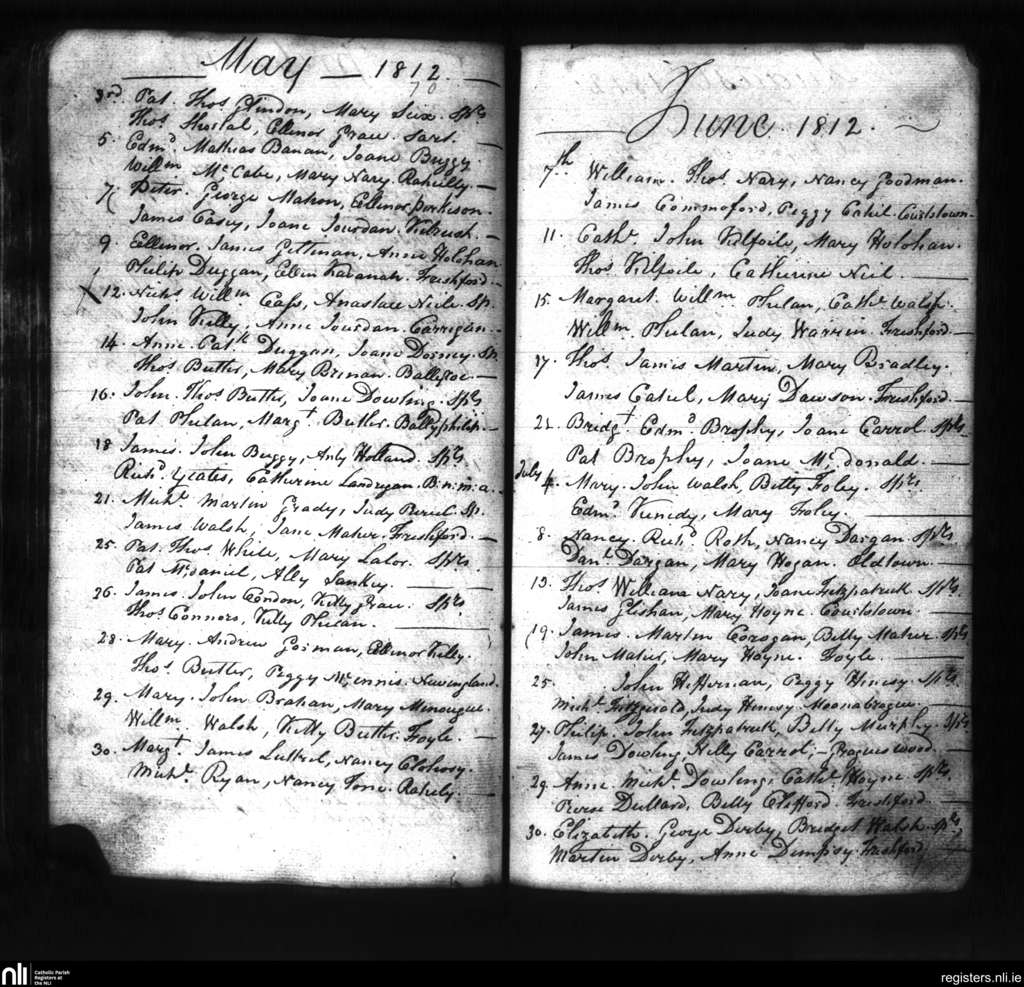 May 1812.
70
3rd Pat. Thos Glindon, Mary Sux. Sprs
Thos Shortal, Ellenor Grace. Sart.
5. Edmd Mathias Banan, Joane Buggy.
Willm McCabe, Mary Nary. Raheilly.
7. Peter. George Mahon, Ellenor
James Casey, Joane Jourdan. Kilrush.
9. Eallenor. James Gettman, Anne Holohan
Philip Duggan, Ellen Kavanah. Freshford.
X 12. Nichs Willm Cass, Anastace Neile. Sp.
John Kelly, Anne Jourdan. Garrigan.
14. Anne. Patk Duggan, Joane Dormey. Sp.
Thos Butler, Mary Brenan. Balleroe.
16. John. Thos Butler, Joane Dowling. Sprs
Pat Phelan, Margt Butler. Ballyphilip.
18 James. John Buggy, Anty Holland. Sprs
Richd Yeates, Catherine Landregan. B:n:m:a.
21. Michl Martin Grady, Judy Sp.
James Walsh, Jane Maher. Freshford.
25. Pat. Thos White, Mary Lalor. Sprs
Pat McDaniel, Ally Sankey.
26. James. John Condon, Kitty Grace. Sprs
Thos Connors, Kitty Phelan.
28. Mary. Andrew Gorman, Ellenor Kelly.
Thos Butler, Peggy McEnnis. Newengland.
29. Mary. John Brahan, Mary Minougue.
Willm Walsh, Kitty Butler. Foyle.
30. Margt James Luttrel, Nancy Clohosy.
Michl Ryan, Nancy Tone. Rahely.
June. 1812.
7th William. Thos Nary, Nancy Goodman.
James Commoford, Peggy Cahil. Courtstown.
11. Cathe. John Kilfoile, Mary Holohan.
Thos Kilfoile, Catherine Neil.
15. Margaret. Willm Phelan, Cathe Walsh.
Willm Phelan, Judy Warren. Freshford.
17. Thos James Martin, Mary Bradley.
James Cahel, Mary Dawson. Freshford.
21. Bridgt Edmd Brophy, Joane Carrol. Sprs
Pat Brophy, Joane McDonald.
July 4. Mary. John Walsh, Betty Foley. Sprs
Edmd Kenedy, Mary Foley.
8. Nancy. Richd Roth, Nancy Dargan. Sprs
Danl Dargan, Mary Hogan. Oldtown.
13. Thos William Nary, Joane Fitzpatrick Sprs
James Glishan, Mary Hoyne. Courtstown.
19. James. Martin Corogan, Betty Maher. Sprs
John Maher, Mary Hoyne. Foyle.
25. John Heffernan, Peggy Henesy. Sprs
Michl Fitzgerald, Judy Henesy. Moonabrogue.
27. Philip. John Fitzpatrick, Betty Murphy Sprs
James Dowling, Nelly Carrol. wood.
29. Anne Michl Dowling, Cathe Hoyne Sprs
Pierse Dullard, Betty Clifford. Freshford.
30. Elizabeth. George Derby, Bridget Walsh. Sprs
Martin Derby, Anne Dempsy. Freshford.
nli Catholic Parish
Registers at
the NLI
registers.nli.ie